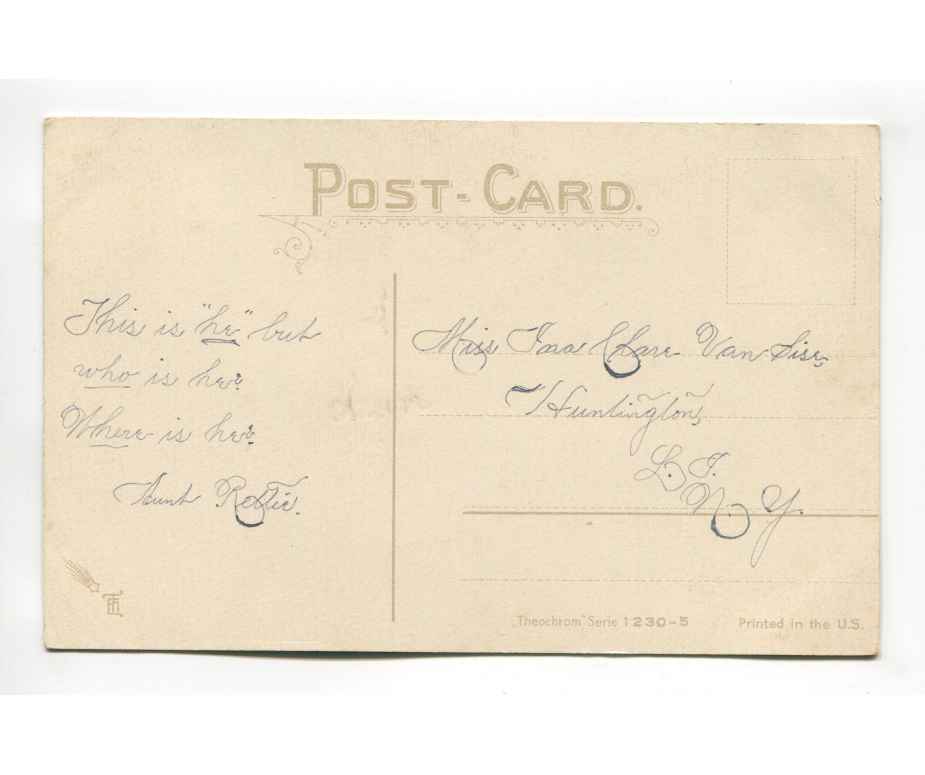 POST-CARD.
This is "he" but
who is he?
Where is he?
Aunt
Miss Van Sise,
Huntington,
L. I.
N. Y.
"Theochrom" Serie 1230-5
Printed in the U.S.